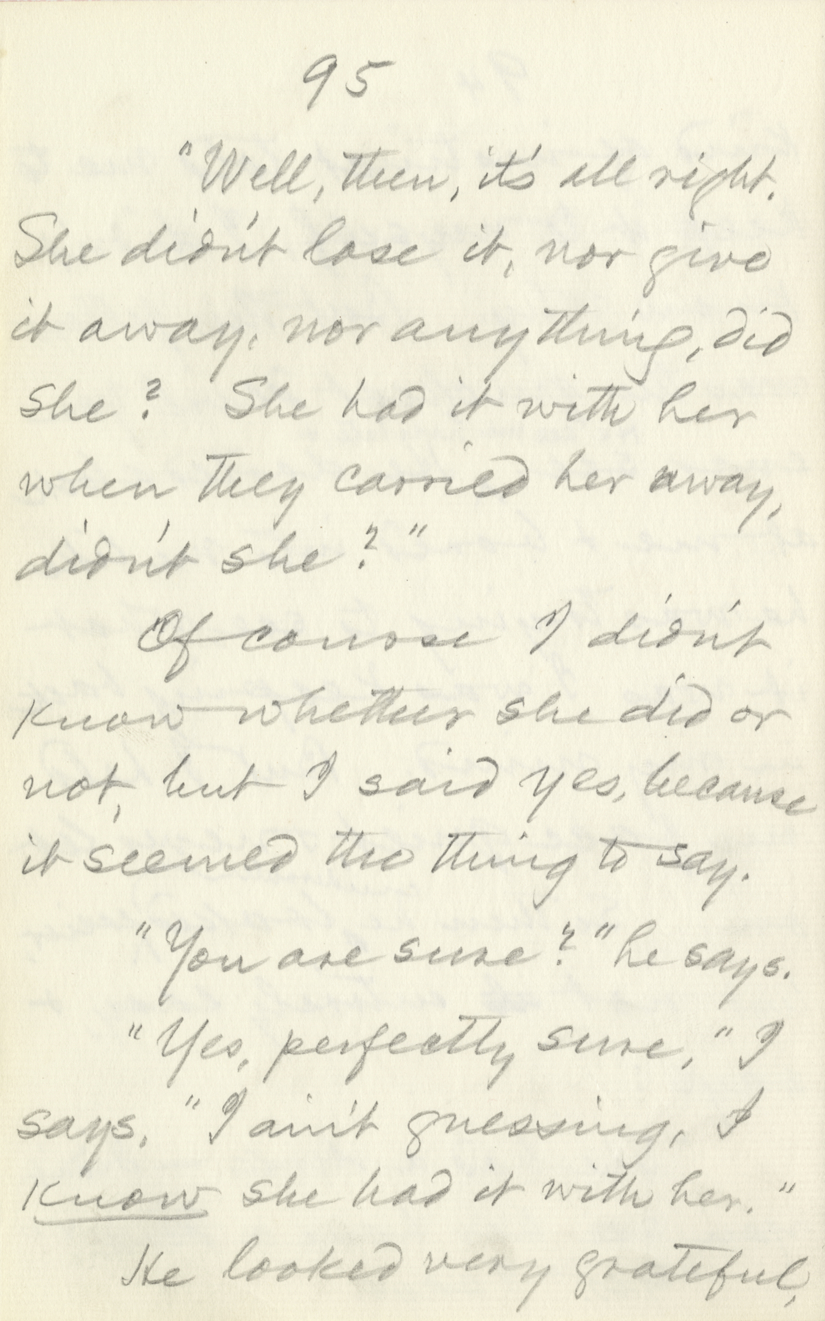 95
"Well, then, it's all right.
She didn't lose it, nor give
it away, nor anything, did
she? She had it with her
when they carried her away,
didn't she?"
Of course I didn't
know whether she did or
not, but I said yes, because
it seemed the thing to say.
"You are sure?" he says.
"Yes, perfectly sure," I
says, "I ain't guessing, I
know she had it with her."
He looked very grateful,